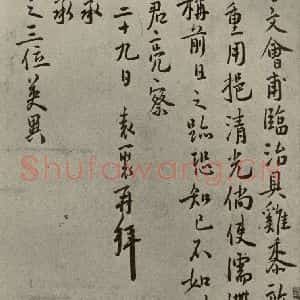 文會甫臨治具雞黍
重用挹清光倘使濡
稱前日之臨恐知已不如
君亮察
二十九日 袁裘再拜
承
之三位美異
Shufawang.Cn